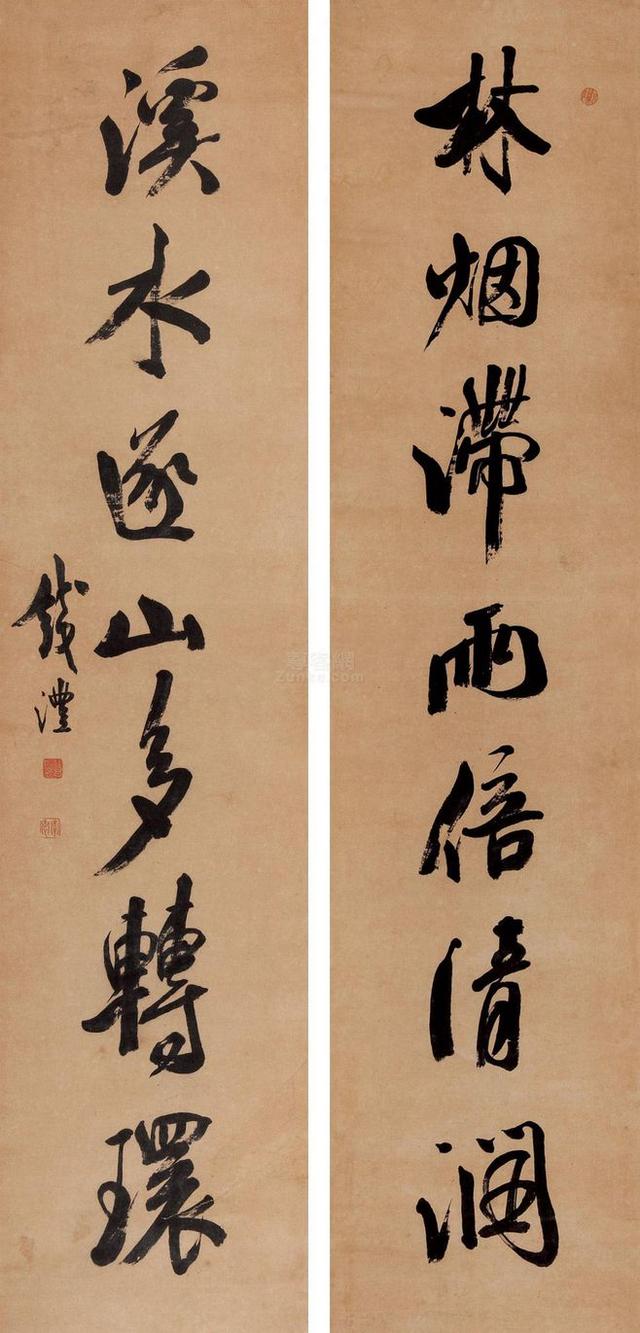 林烟滞雨倍清润
溪水逐山多轉環
錢灃